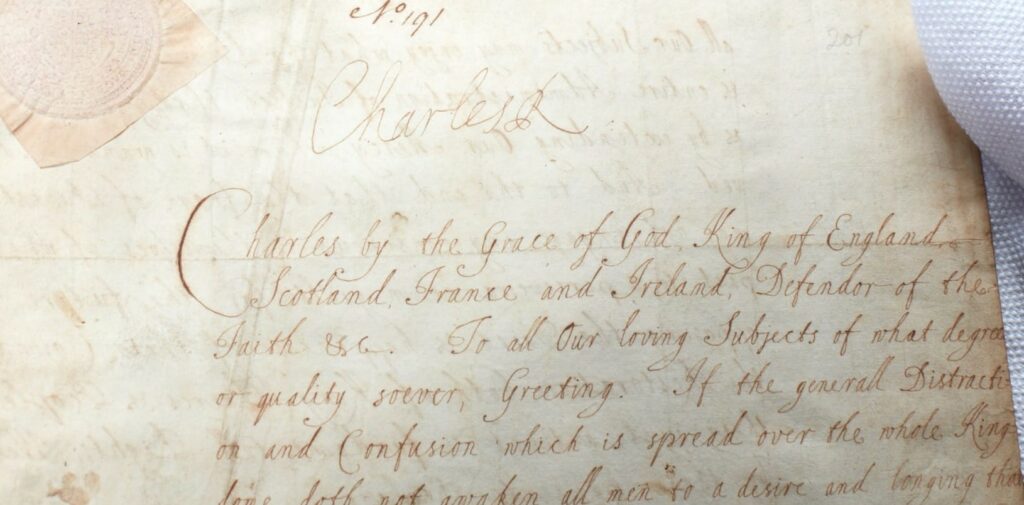 No. 191
201
Charles R
Charles by the Grace of God, King of England,
Scotland, France and Ireland, Defendor of the
Faith &c. To all Our loving Subjects of what degree
or quality soever, Greeting. If the generall Distracti-
on and Confusion which is spread over the whole King-
dome doth not awaken all men to a desire and longing tha